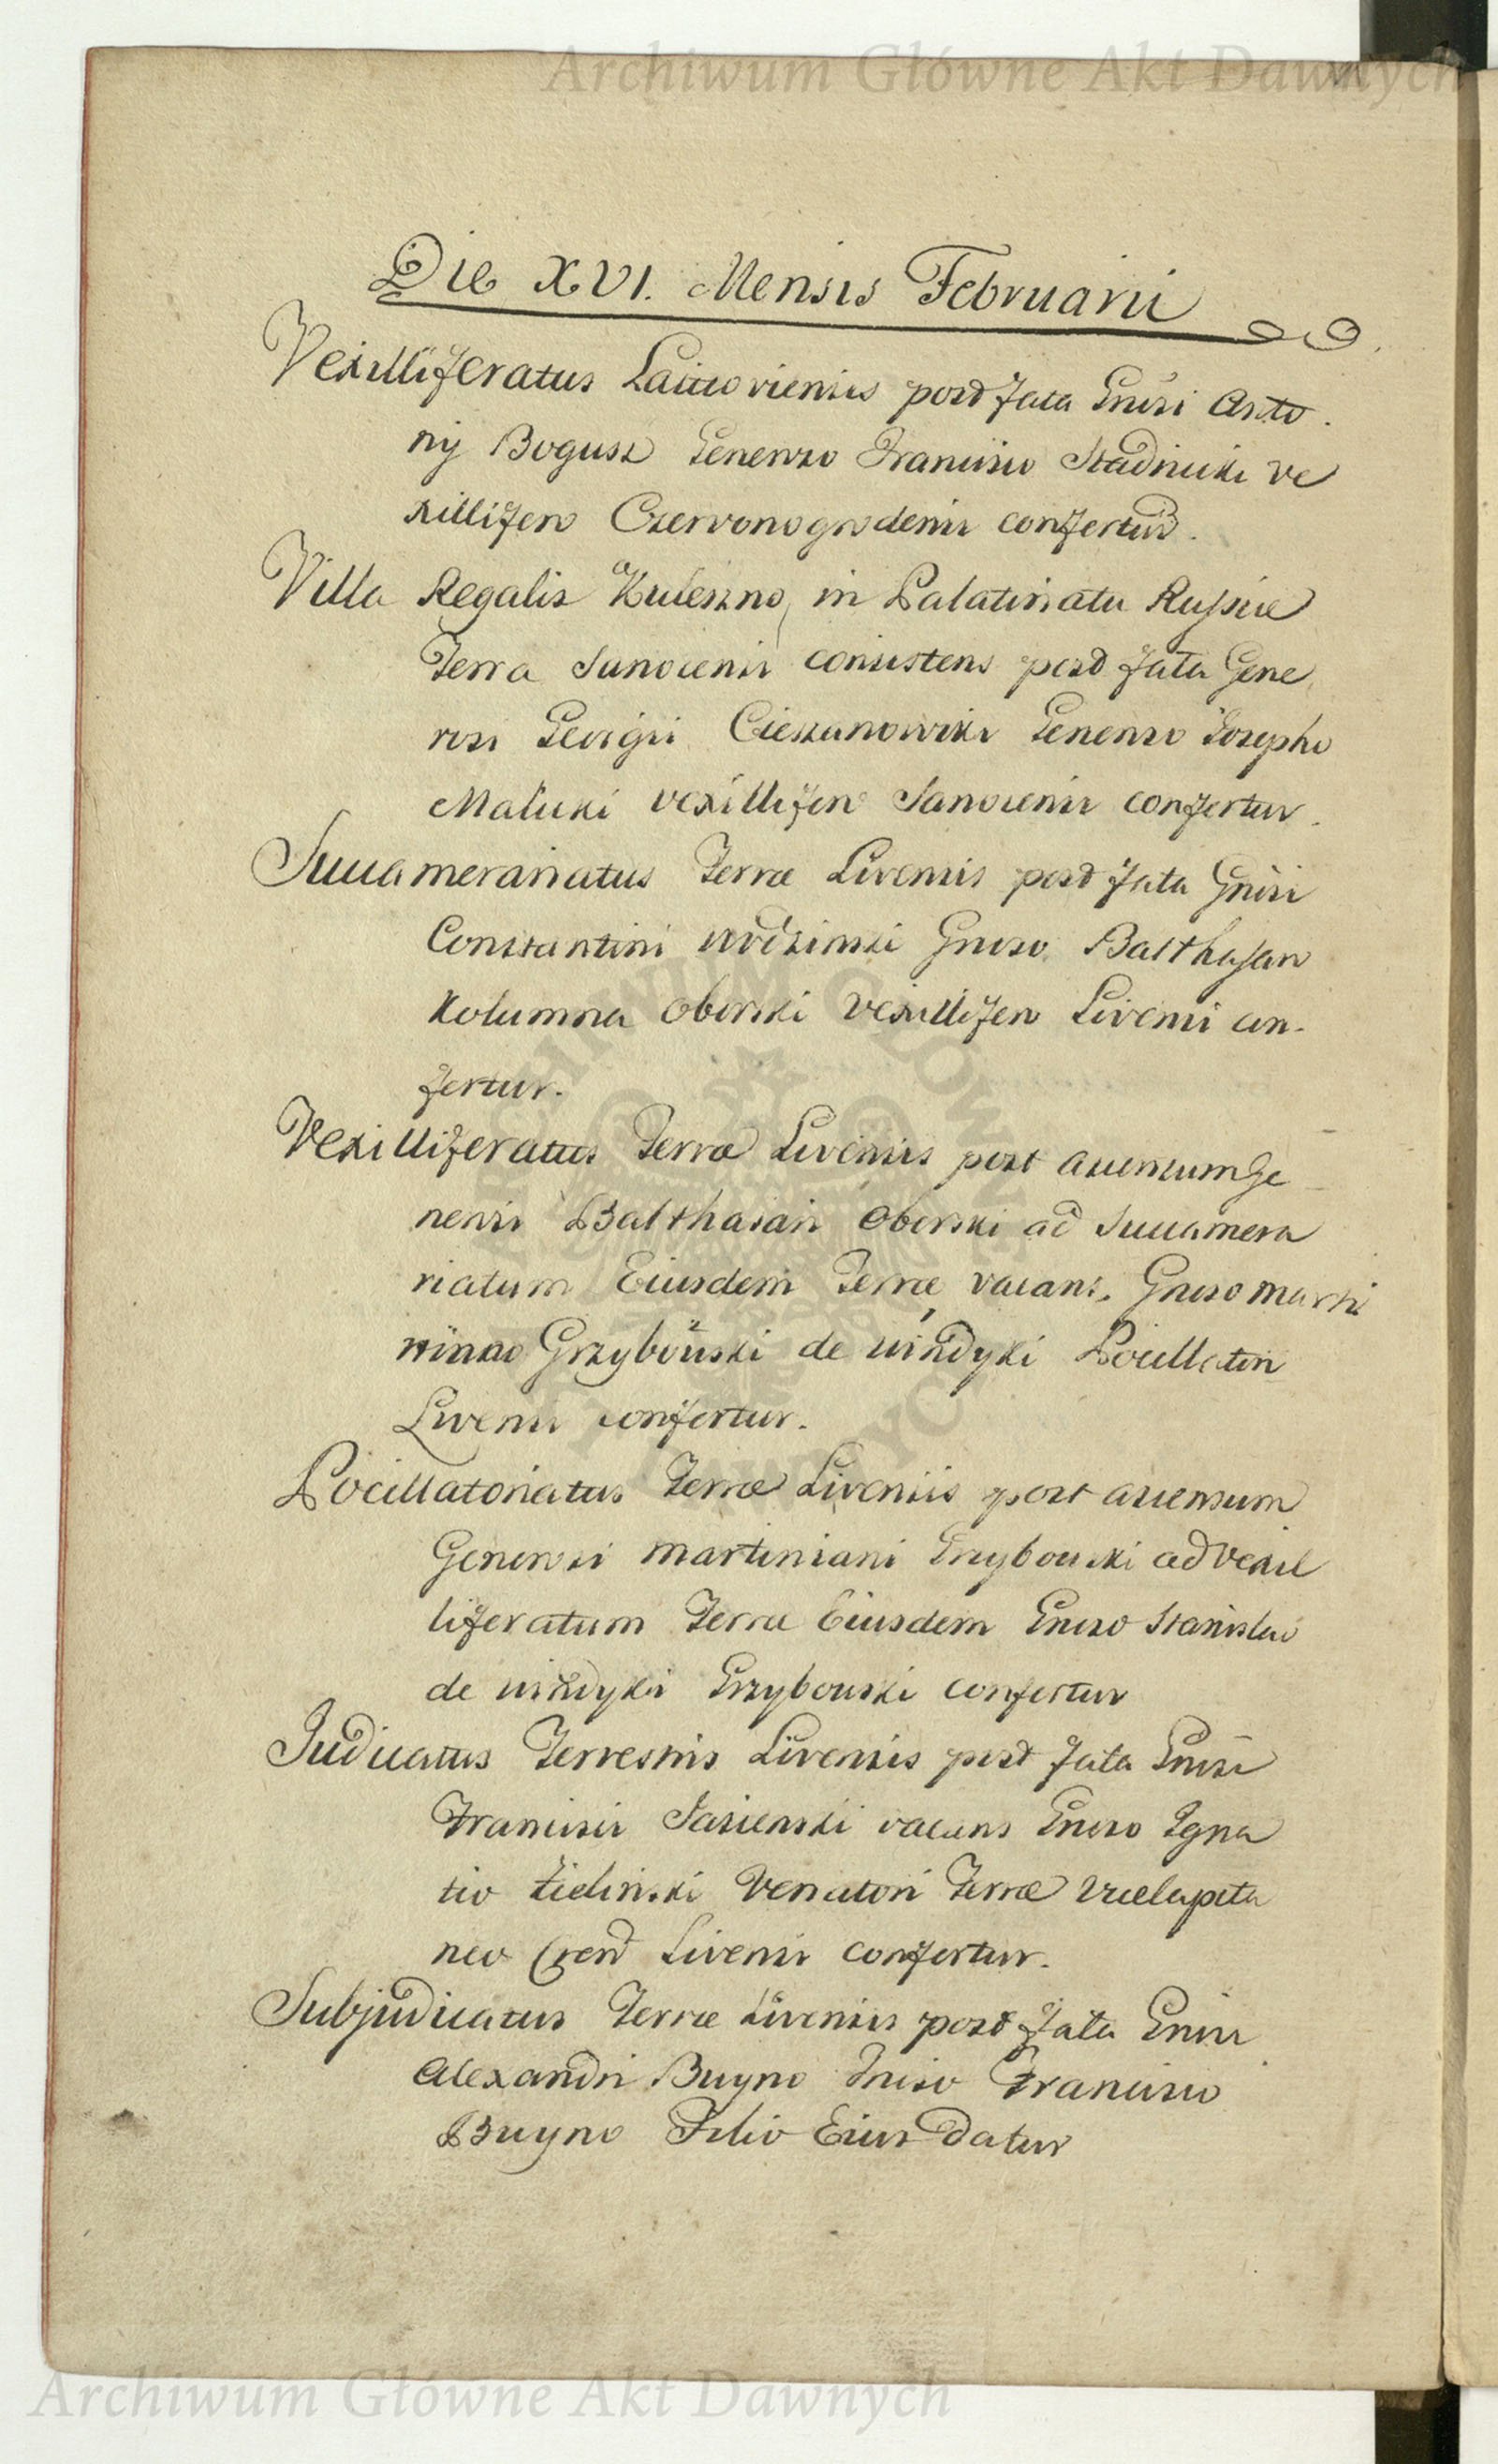 Archiwum Główne Akt Dawnych
Die XVI. Mensis Februarii
Vexilliferatus Laticoviensis post fata Gnisi Anto
nij Bogusz Generoso Francisco Stadnicki ve
xillifero Czervonogrodensi confertur.
Villa Regalis Kuleszno, in Palatinatu Russiæ
Terra Sanocensi consistens post fata Gene
rosi Georgii Cieszanowski Generoso Josepho
Malicki vexillifero Sanocensi confertur.
Succamerariatus Terræ Livensis post fata Gnisi
Constantini Gnoso Balthasari
Kolumna Oborski Vexillifero Livensi con-
fertur.
Vexilliferatus Terræ Livensis post ascensum Ge
nerosi Balthasari Oborski ad Succamera
riatum Eiusdem Terræ vacans. Gnoso Marti
niano Grzybowski de Windyki Pocillatori
Livensi confertur.
Pocillatoriatus Terræ Livensis post ascensum
Generosi Martiniani Grzybowski ad Vexil
liferatum Terræ Eiusdem Gnoso Stanislao
de Windyki Grzybowski confertur
Judicatus Terrestris Livensis post fata Gnisi
Francisci Jasienski vacans Gnoso Igna
tio Zielinski Venatori Terræ
neo Livensi confertur.
Subjudicatus Terræ Livensis post fata Gnisi
Alexandri Buyno Gniso Francisco
Buyno Filio Eius Datur
Archiwum Główne Akt Dawnych